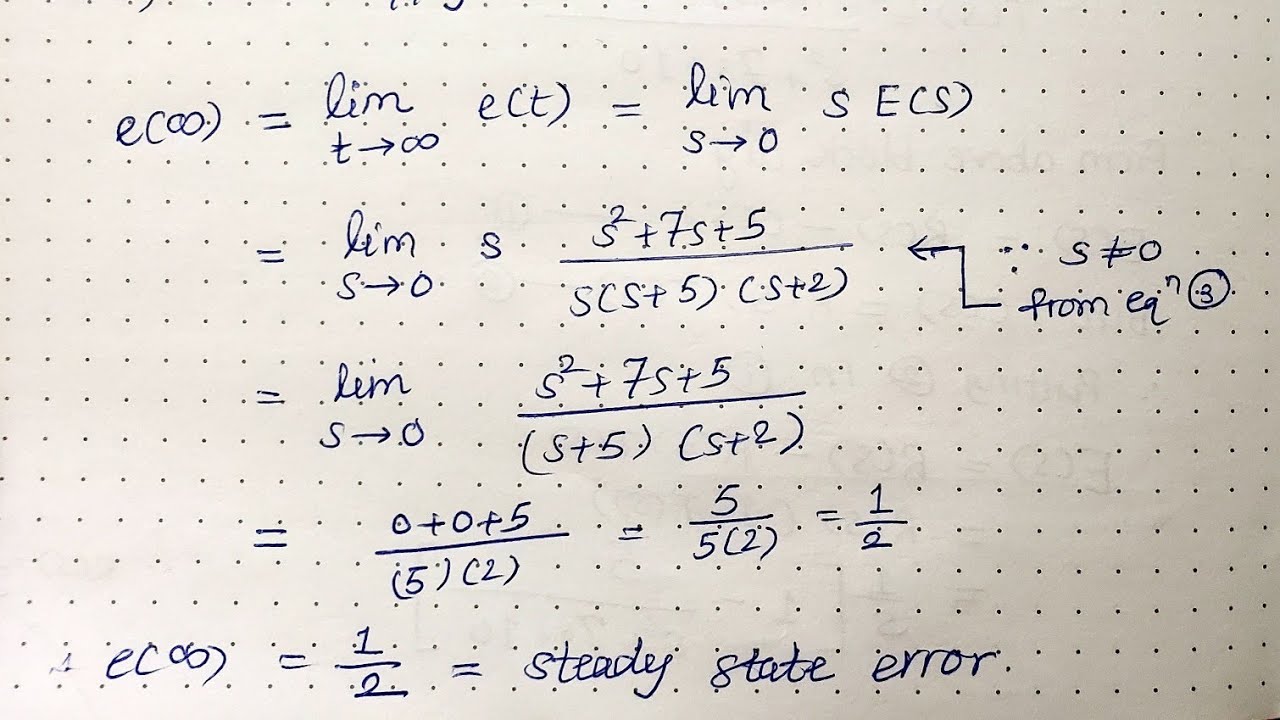 e(∞) = lim t→∞ e(t) = lim s→0 s E(s)
= lim s→0 s (s²+7s+5)/(s(s+5)(s+2)) ← ∵ s≠0
from eqⁿ ③
= lim s→0 (s²+7s+5)/((s+5)(s+2))
= (0+0+5)/((5)(2)) = 5/(5(2)) = 1/2
e(∞) = 1/2 = steady state error.